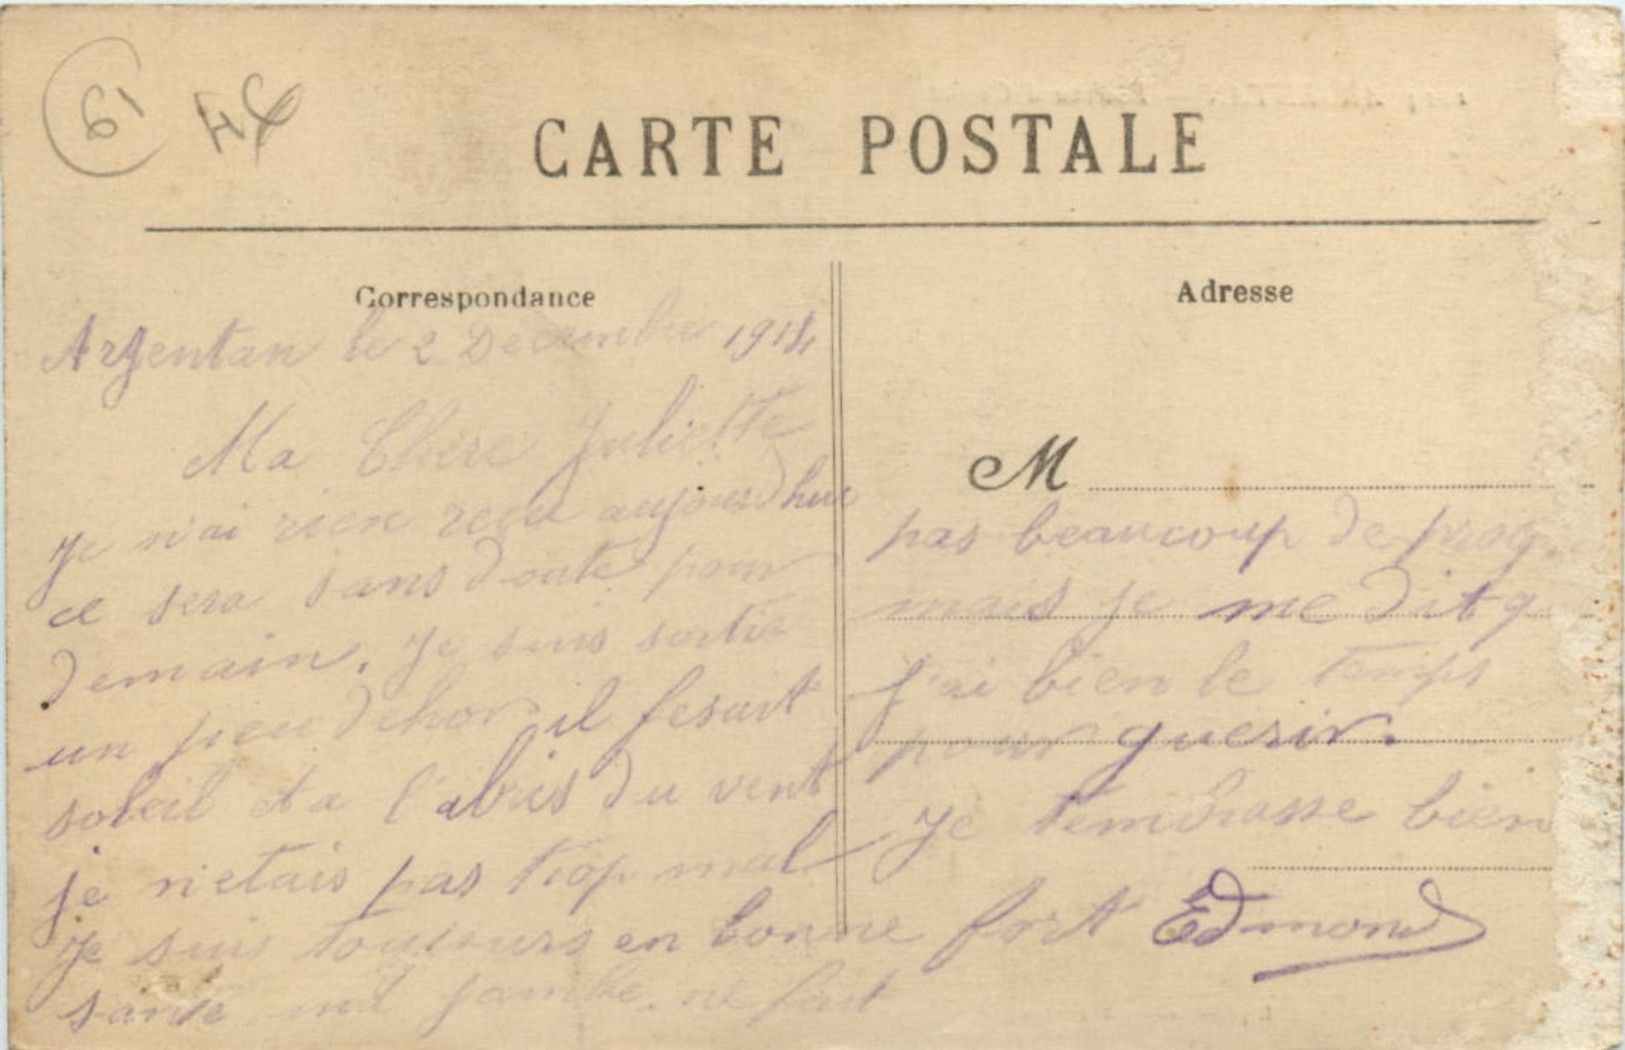 61
CARTE POSTALE
Correspondance
Argentan le 2 Decembre 1914
Ma Chere Juliette
Je n'ai rien recu aujourdhui
ce sera sans doute pour
demain. Je suis sortir
un peu dehors il fesait
soleil et a l'abris du vent
je n'etais pas trop mal
Je suis toujours en bonne
santé jambe ne fait
Adresse
M
pas beaucoup de prog
mais je me dit q
j'ai bien le temps
pour guerir.
Je t'embrasse bien
fort Edmond